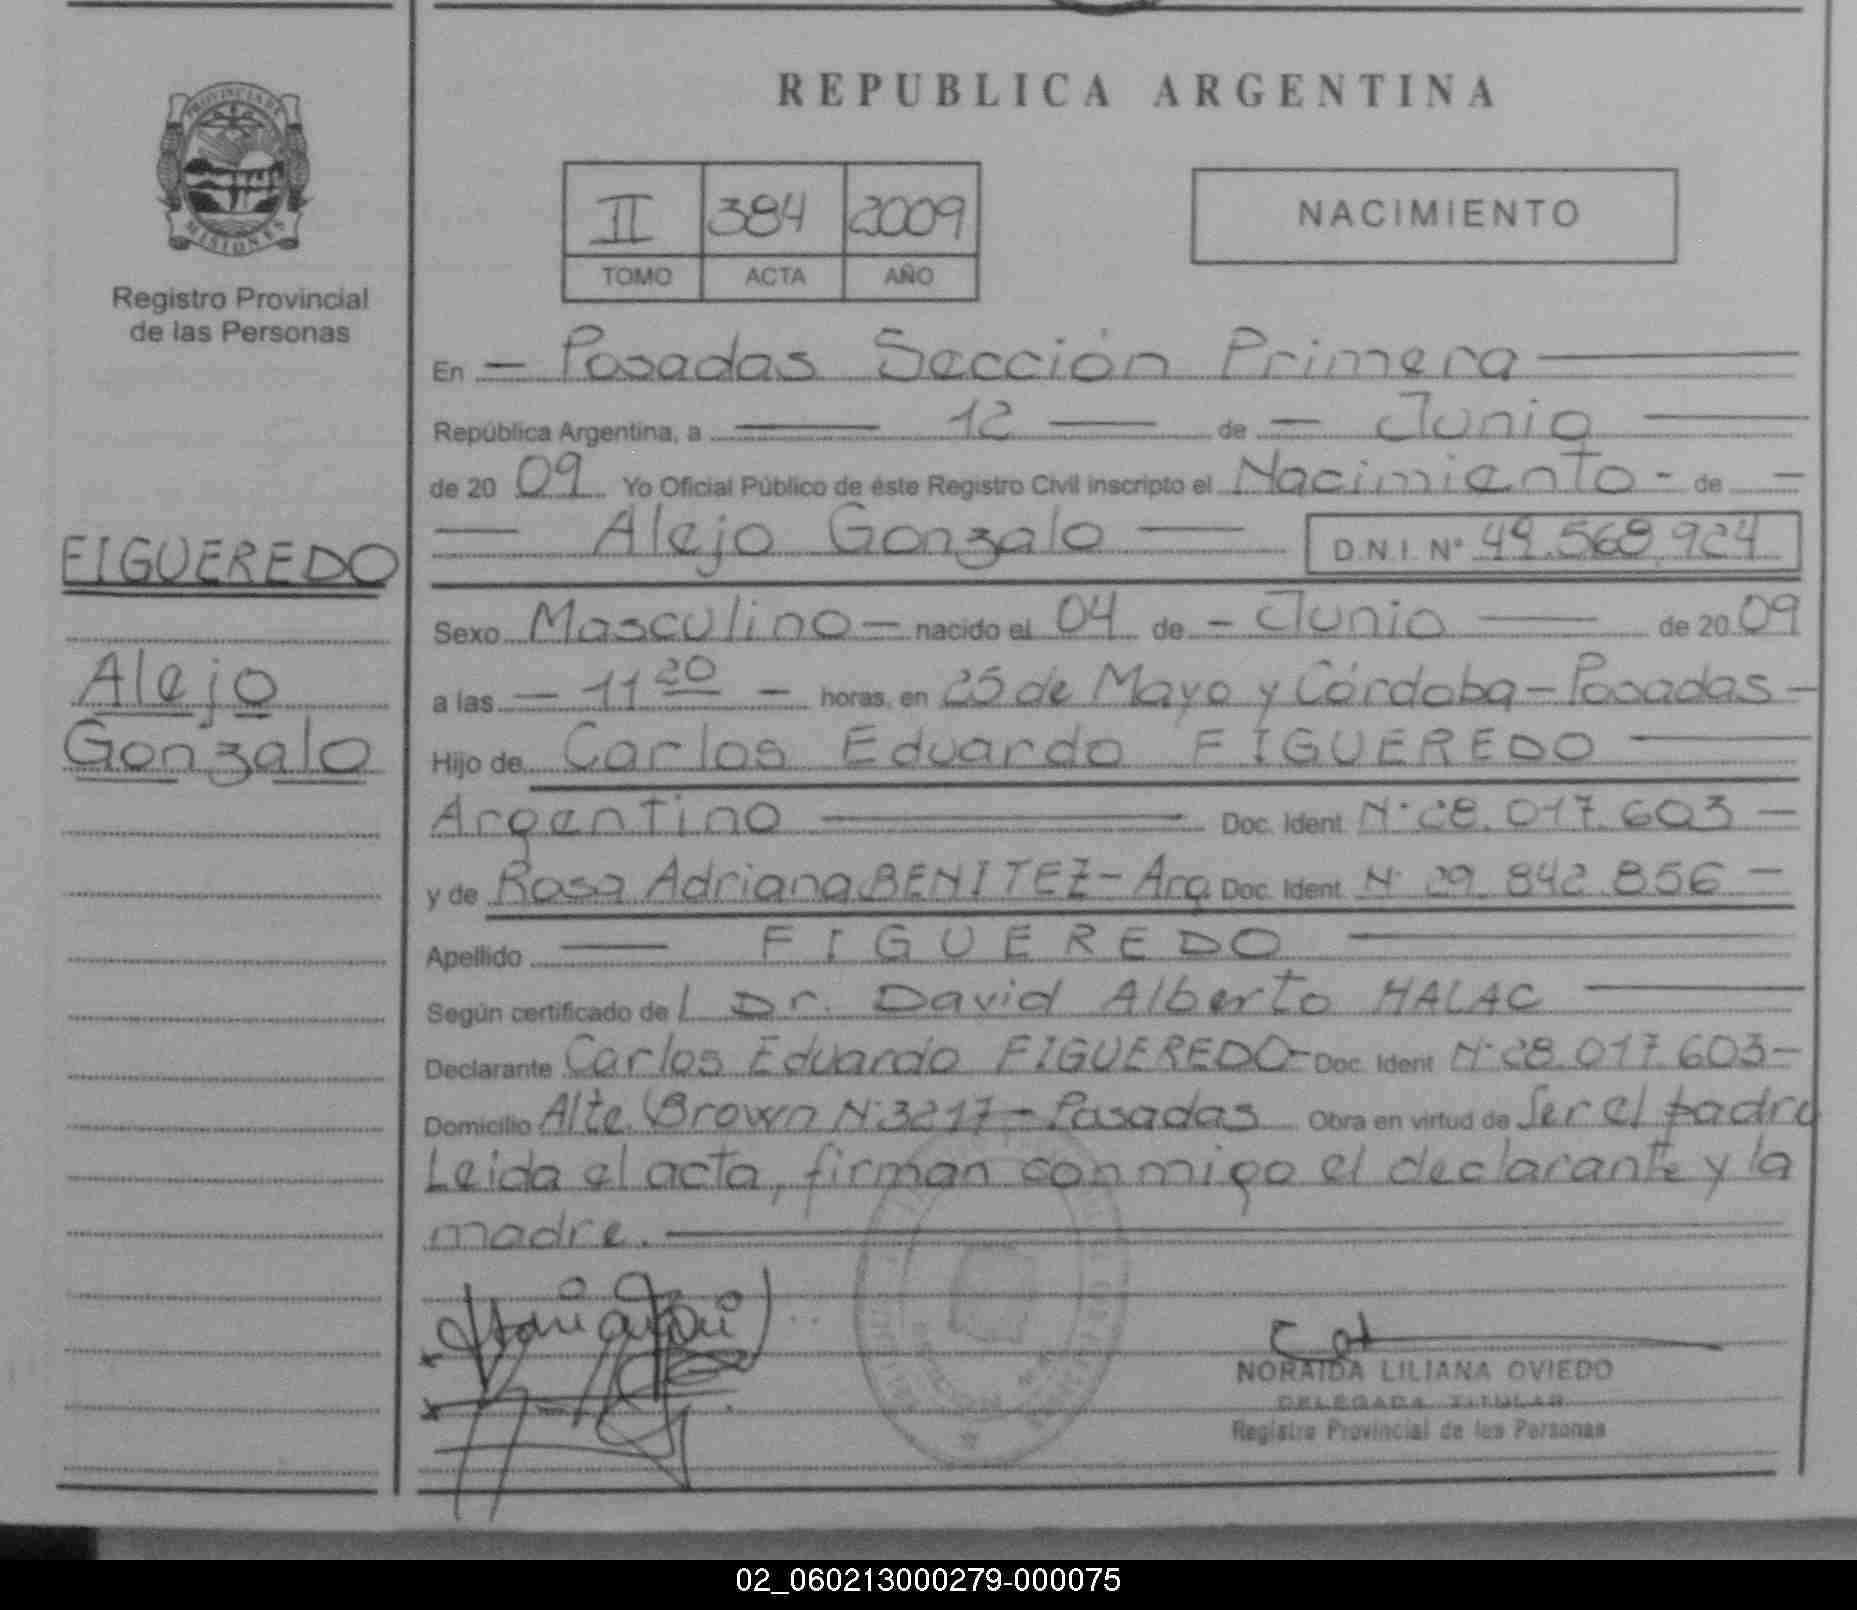 REPUBLICA ARGENTINA
PROVINCIA DE
MISIONES
Registro Provincial
de las Personas
II 384 2009
TOMO ACTA AÑO
NACIMIENTO
FIGUEREDO
Alejo
Gonzalo
En — Posadas Sección Primera —
República Argentina, a — 12 — de — Junio —
de 20 09 Yo Oficial Público de éste Registro Civil inscripto el Nacimiento - de —
— Alejo Gonzalo — D.N.I. Nº 49.568.924
Sexo Masculino — nacido el 04 de — Junio — de 20 09
a las — 11 20 — horas, en 25 de Mayo y Córdoba — Posadas —
Hijo de Carlos Eduardo FIGUEREDO —
Argentino — Doc. Ident N° 28.017.603 —
y de Rosa Adriana BENITEZ — Arg. Doc. Ident N° 29.842.856 —
Apellido — FIGUEREDO —
Según certificado de l Dr. David Alberto HALAC —
Declarante Carlos Eduardo FIGUEREDO — Doc. Ident N° 28.017.603 —
Domicilio Alte. Brown N° 3217 — Posadas Obra en virtud de Ser el padre
Leida el acta, firman conmigo el declarante y la
madre. —
NORAIDA LILIANA OVIEDO
DELEGADA TITULAR
Registro Provincial de las Personas
02_060213000279-000075